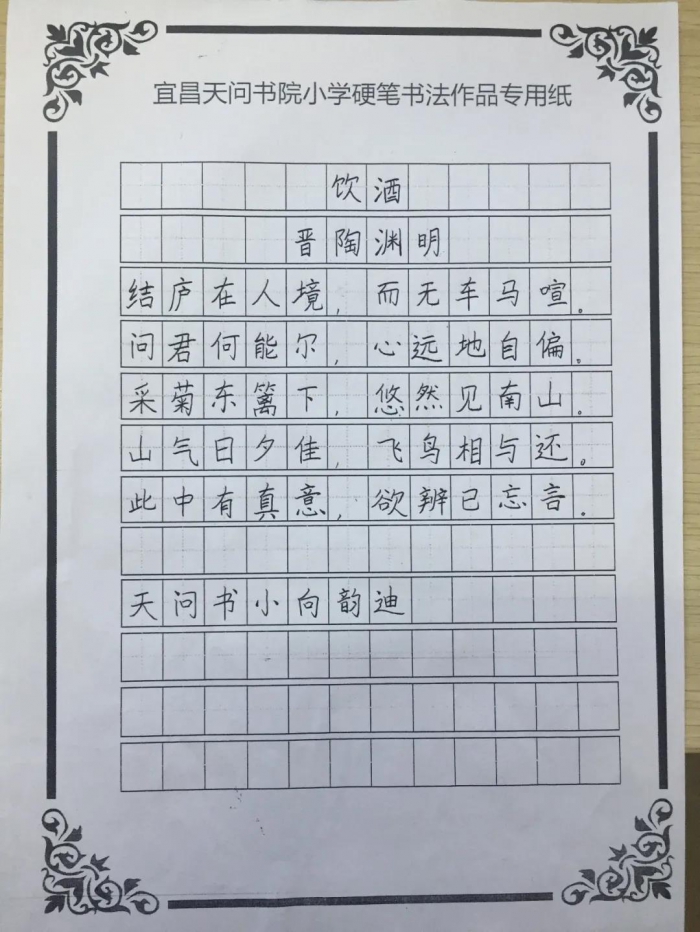 宜昌天问书院小学硬笔书法作品专用纸
饮酒
晋陶渊明
结庐在人境，而无车马喧。
问君何能尔，心远地自偏。
采菊东篱下，悠然见南山。
山气日夕佳，飞鸟相与还。
此中有真意，欲辨已忘言。
天问书小向韵迪